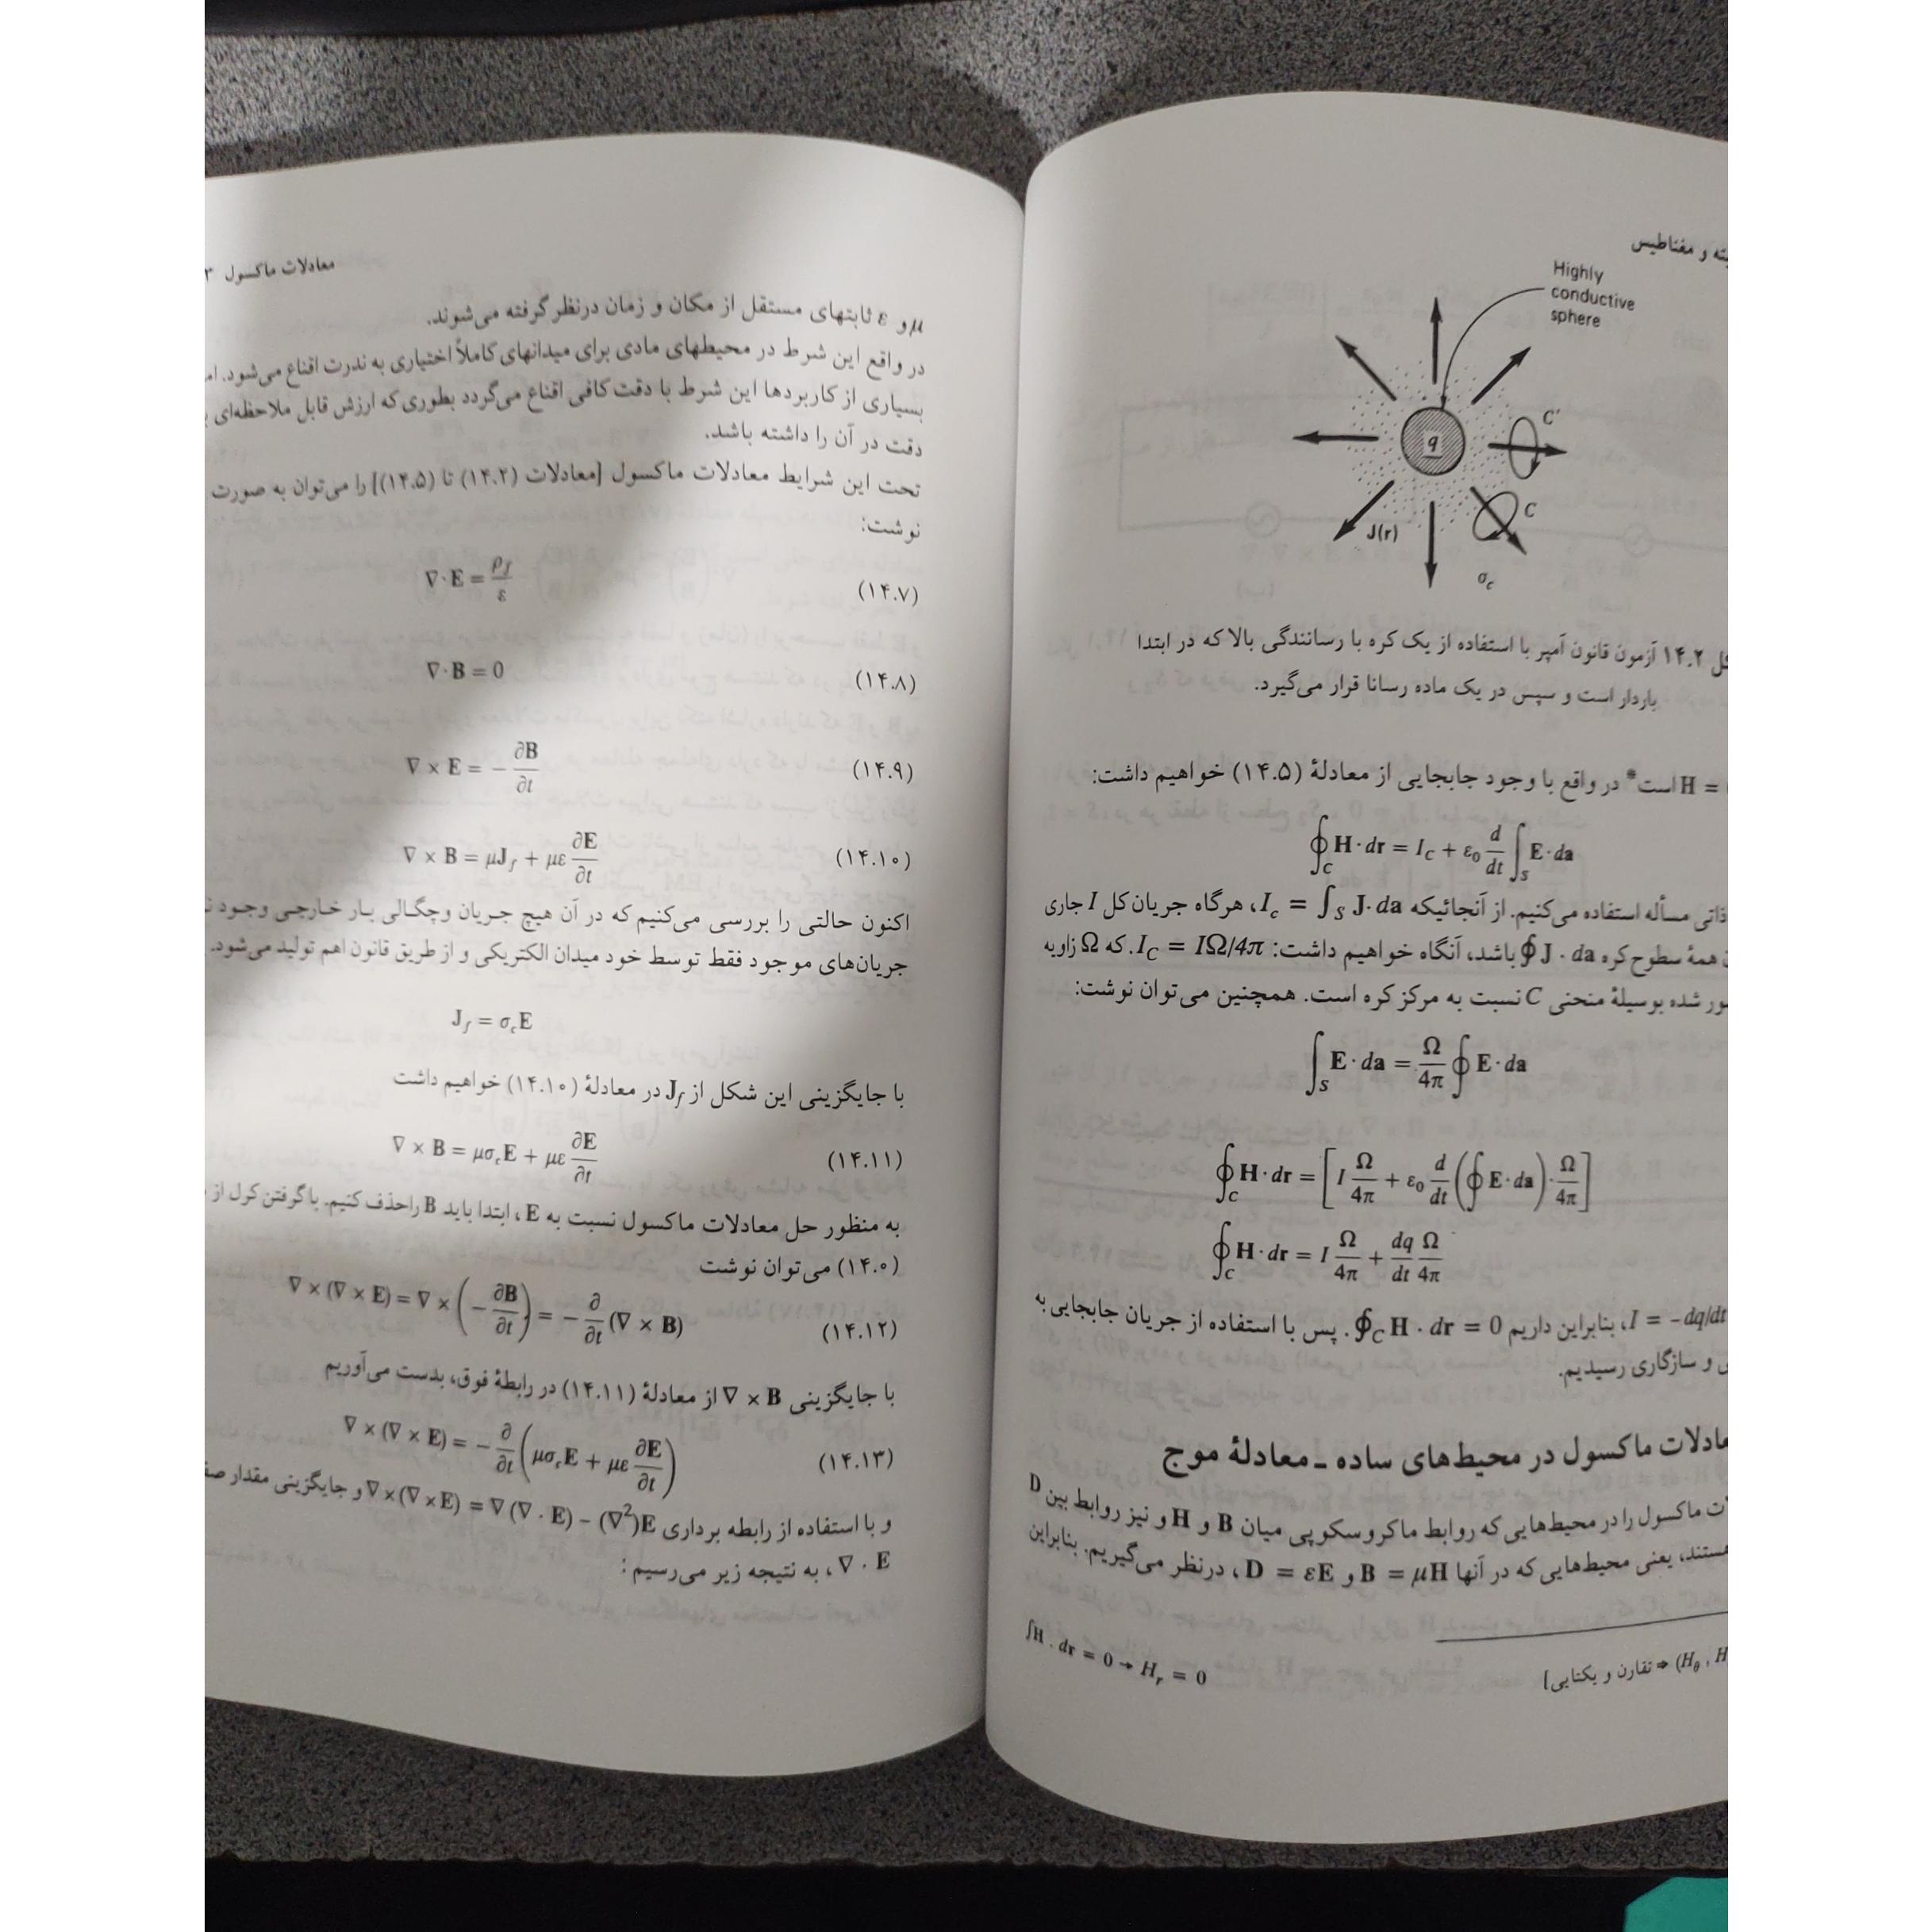 بسته و مغناطیس
Highly
conductive
sphere
q
C'
C
J(r)
σ_c
۱۴.۲ آزمون قانون آمپر با استفاده از یک کره با رسانندگی بالا که در ابتدا
باردار است و سپس در یک ماده رسانا قرار می‌گیرد.
H = است* در واقع با وجود جابجایی از معادلهٔ (۱۴.۵) خواهیم داشت:
∮_C H · dr = I_C + ε₀ d/dt ∫_S E · da
ذاتی مسأله استفاده می‌کنیم. از آنجائیکه I_c = ∫_S J · da، هرگاه جریان کل I جاری
همهٔ سطوح کره ∮ J · da باشد، آنگاه خواهیم داشت: I_C = IΩ/4π. که Ω زاویه
شده بوسیلهٔ منحنی C نسبت به مرکز کره است. همچنین می‌توان نوشت:
∫_S E · da = Ω/4π ∮ E · da
∮_C H · dr = [I Ω/4π + ε₀ d/dt (∮ E · da) · Ω/4π]
∮_C H · dr = I Ω/4π + dq/dt Ω/4π
I = −dq/dt، بنابراین داریم ∮_C H · dr = 0. پس با استفاده از جریان جابجایی به
و سازگاری رسیدیم.
معادلات ماکسول در محیط‌های ساده ـ معادلهٔ موج
ماکسول را در محیط‌هایی که روابط ماکروسکوپی میان B و H و نیز روابط بین D
هستند، یعنی محیط‌هایی که در آنها B = μH و D = εE، درنظر می‌گیریم. بنابراین
(H_θ , H ⇒ تقارن و یکتایی] ∫H · dr = 0 → H_r = 0
معادلات ماکسول ۳
μ و ε ثابتهای مستقل از مکان و زمان درنظر گرفته می‌شوند.
در واقع این شرط در محیطهای مادی برای میدانهای کاملاً اختیاری به ندرت اقناع می‌شود.
بسیاری از کاربردها این شرط با دقت کافی اقناع می‌گردد بطوری که ارزش قابل ملاحظه‌ای
دقت در آن را داشته باشد.
تحت این شرایط معادلات ماکسول [معادلات (۱۴.۲) تا (۱۴.۵)] را می‌توان به صورت
نوشت:
∇·E = ρ_f/ε (۱۴.۷)
∇·B = 0 (۱۴.۸)
∇ × E = − ∂B/∂t (۱۴.۹)
∇ × B = μJ_f + με ∂E/∂t (۱۴.۱۰)
اکنون حالتی را بررسی می‌کنیم که در آن هیچ جریان وچگالی بار خارجی وجود
جریان‌های موجود فقط توسط خود میدان الکتریکی و از طریق قانون اهم تولید می‌شود.
J_f = σ_c E
با جایگزینی این شکل از J_f در معادلهٔ (۱۴.۱۰) خواهیم داشت
∇ × B = μσ_c E + με ∂E/∂t (۱۴.۱۱)
به منظور حل معادلات ماکسول نسبت به E، ابتدا باید B راحذف کنیم. با گرفتن کرل از
(۱۴.۰) می‌توان نوشت
∇ × (∇ × E) = ∇ × (− ∂B/∂t) = − ∂/∂t (∇ × B) (۱۴.۱۲)
با جایگزینی ∇ × B از معادلهٔ (۱۴.۱۱) در رابطهٔ فوق، بدست می‌آوریم
∇ × (∇ × E) = − ∂/∂t (μσ_c E + με ∂E/∂t) (۱۴.۱۳)
و با استفاده از رابطه برداری ∇×(∇×E) = ∇(∇ · E) − (∇²)E و جایگزینی مقدار
∇ · E، به نتیجه زیر می‌رسیم: